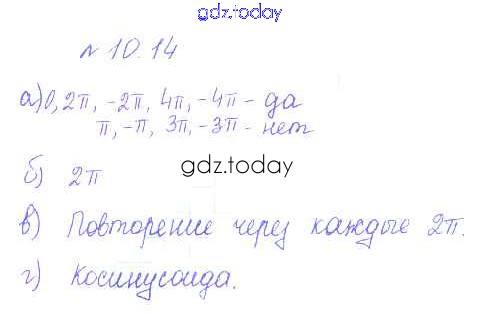 gdz.today
№ 10.14
а) 0, 2π, -2π, 4π, -4π - да
π, -π, 3π, -3π - нет
gdz.today
б) 2π
в) Повторение через каждые 2π.
г) Косинусоида.